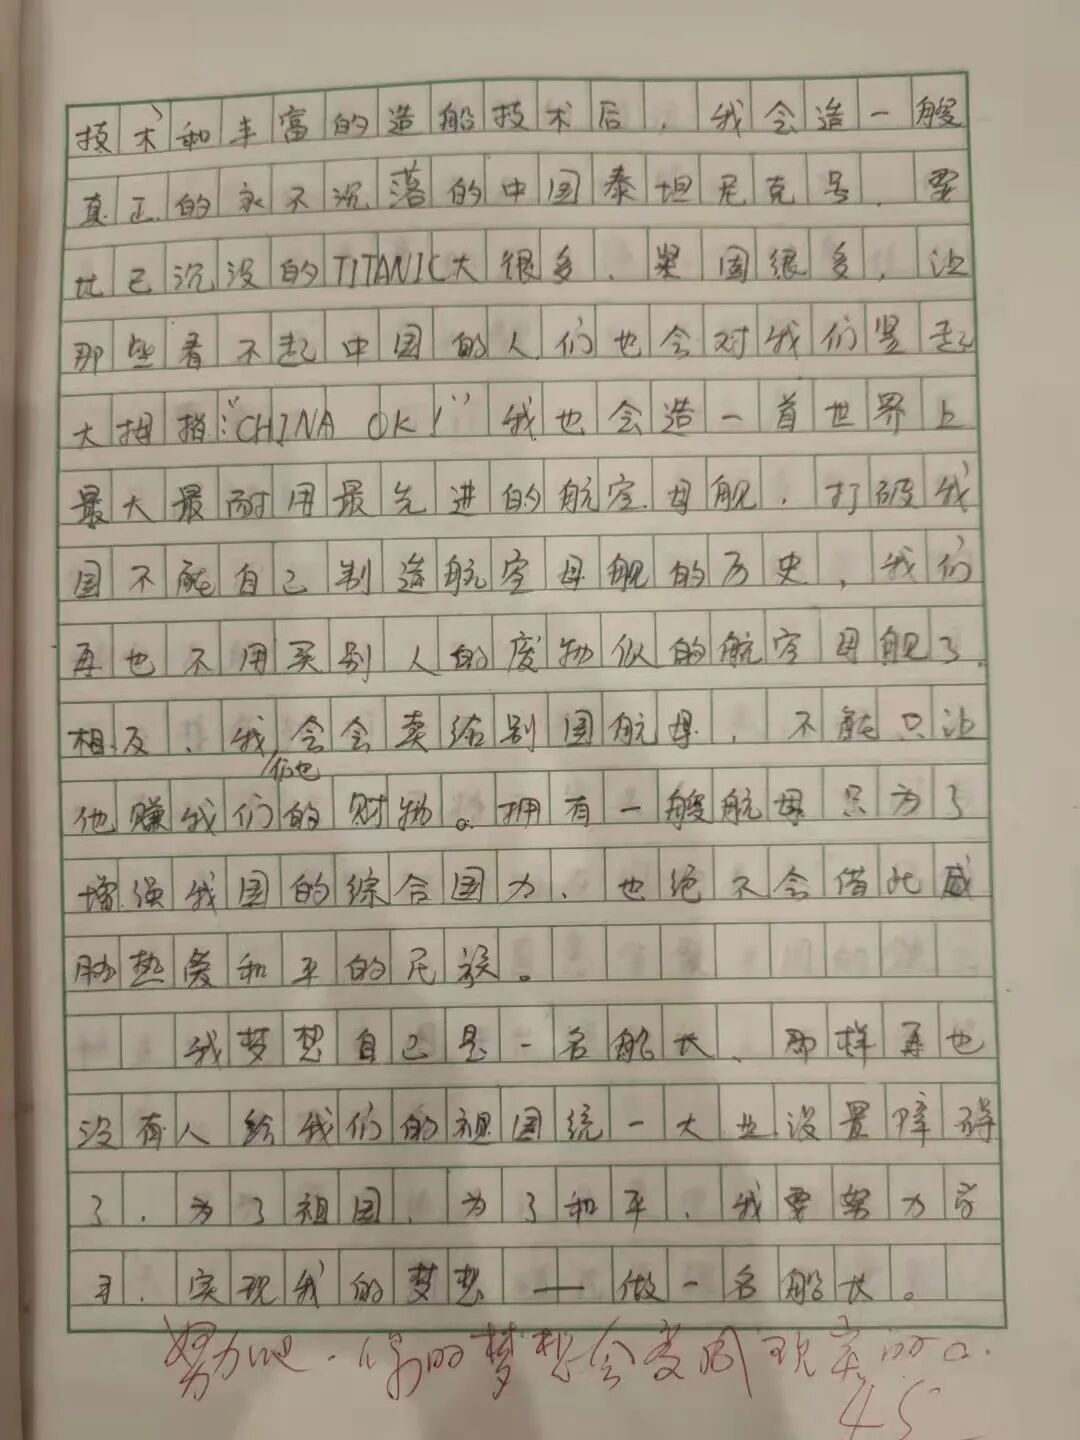 技术和丰富的造船技术后，我会造一艘
真正的永不沉落的中国泰坦尼克号，要
比已沉没的TITANIC大很多、坚固很多，让
那些看不起中国的人们也会对我们竖起
大拇指："CHINA OK！"我也会造一首世界上
最大最耐用最先进的航空母舰，打破我
国不能自己制造航空母舰的历史，我们
再也不用买别人的废物似的航空母舰了，
相反，我会会卖给别国航母，不能只让
们也
他赚我们的财物。拥有一艘航母只为了
增强我国的综合国力，也绝不会借此威
胁热爱和平的民族。
我梦想自己是一名船长，那样再也
没有人给我们的祖国统一大业设置障碍
了，为了祖国，为了和平，我要努力学
习，实现我的梦想——做一名船长。
努力吧，你的梦想会变成现实的。
45